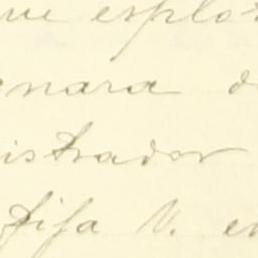 ue explo
enara d
istrador
fifa V. e